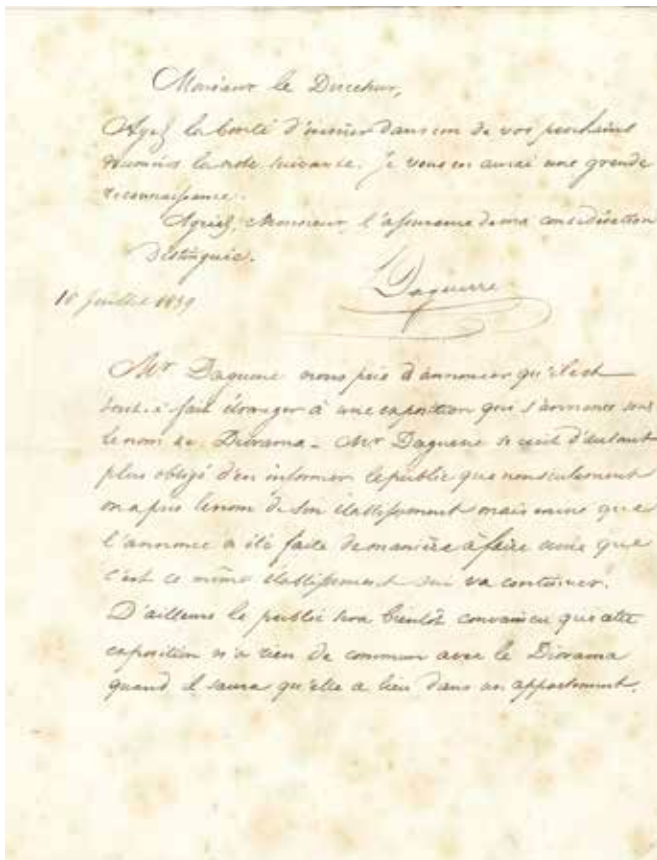 Monsieur le Directeur,
Ayez la bonté d'insérer dans un de vos prochains
numéros la note suivante. Je vous en aurai une grande
reconnaissance.
Agréez, Monsieur, l'assurance de ma considération
Distinguée.
Daguerre
Juillet 1839
Mr Daguerre nous prie d'annoncer qu'il est
tout à fait étranger à une exposition qui s'annonce sous
le nom de Diorama. Mr Daguerre se croit d'autant
plus obligé d'en informer le public que non seulement
on a pris le nom de son établissement mais encore que
l'annonce a été faite de manière à faire croire que
c'est ce même établissement qui va continuer.
D'ailleurs le public sera bientôt convaincu que cette
exposition n'a rien de commun avec le Diorama
quand il saura qu'elle a lieu dans un appartement.